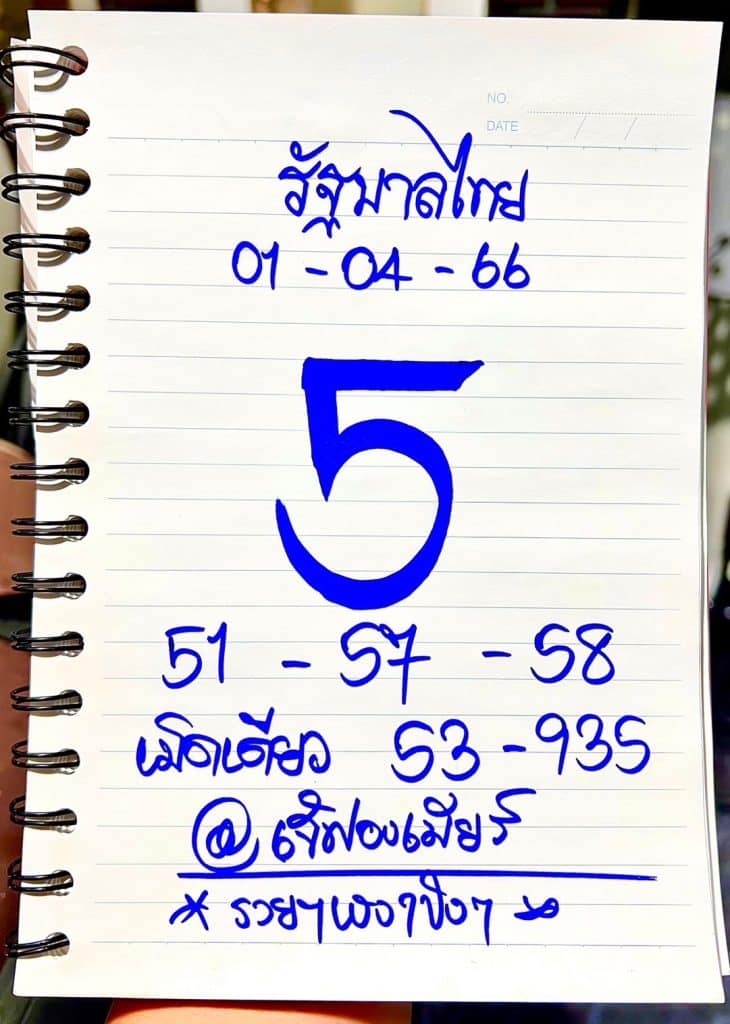 NO.
DATE / /
รัฐบาลไทย
01 - 04 - 66
5
51 - 57 - 58
เม็ดเดียว 53 - 935
@เจ๊ฟองเบียร์
* รวยๆเฮงๆปังๆ *